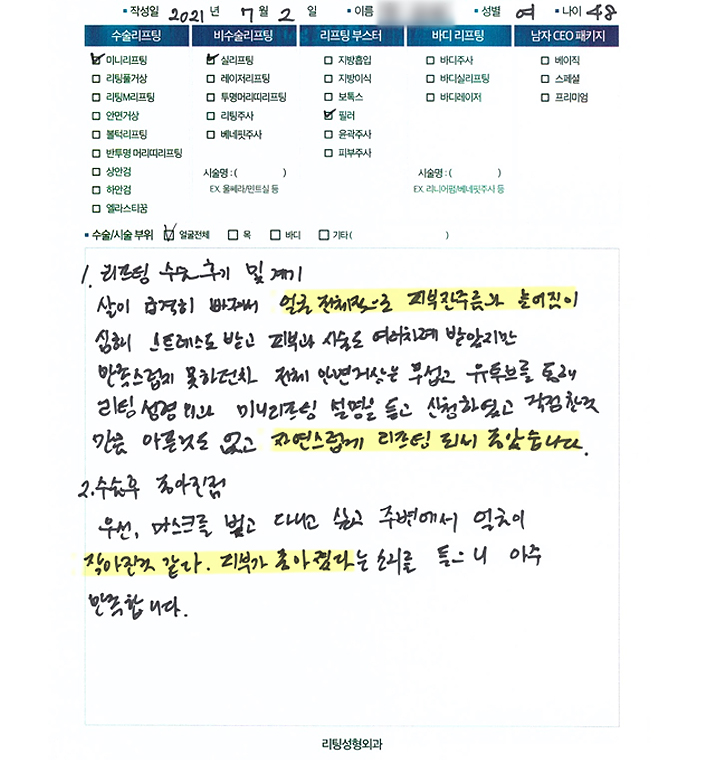 작성일 2021년 7월 2일 이름 성별 여 나이 48
수술리프팅 비수술리프팅 리프팅 부스터 바디 리프팅 남자 CEO 패키지
미니리프팅 실리프팅 지방흡입 바디주사 베이직
리팅풀거상 레이저리프팅 지방이식 바디실리프팅 스페셜
리팅M리프팅 투명머리띠리프팅 보톡스 바디레이저 프리미엄
안면거상 리팅주사 필러
볼턱리프팅 베네핏주사 윤곽주사
반투명 머리띠리프팅 피부주사
상안검 시술명 : ( ) 시술명 : ( )
하안검 EX. 울쎄라/민트실 등 EX. 리니어펌/베네핏주사 등
엘라스티꿈
수술/시술 부위 얼굴전체 목 바디 기타 ( )
1. 리프팅 수술후기 및 계기
살이 급격히 빠져서 얼굴 전체적으로 피부잔주름과 늘어짐이
심해 스트레스도 받고 피부과 시술도 여러차례 받았지만
만족스럽지 못하던차 전체 안면거상은 무섭고 유튜브를 통해
리팅성형외과 미니리프팅 설명을 듣고 신청하였고 걱정한것
만큼 아픈것도 없고 자연스럽게 리프팅 되서 좋았습니다.
2. 수술후 좋아진점
우선, 마스크를 벗고 다니고 싶고 주변에서 얼굴이
작아진것 같다. 피부가 좋아졌다는 소리를 들으니 아주
만족합니다.
리팅성형외과